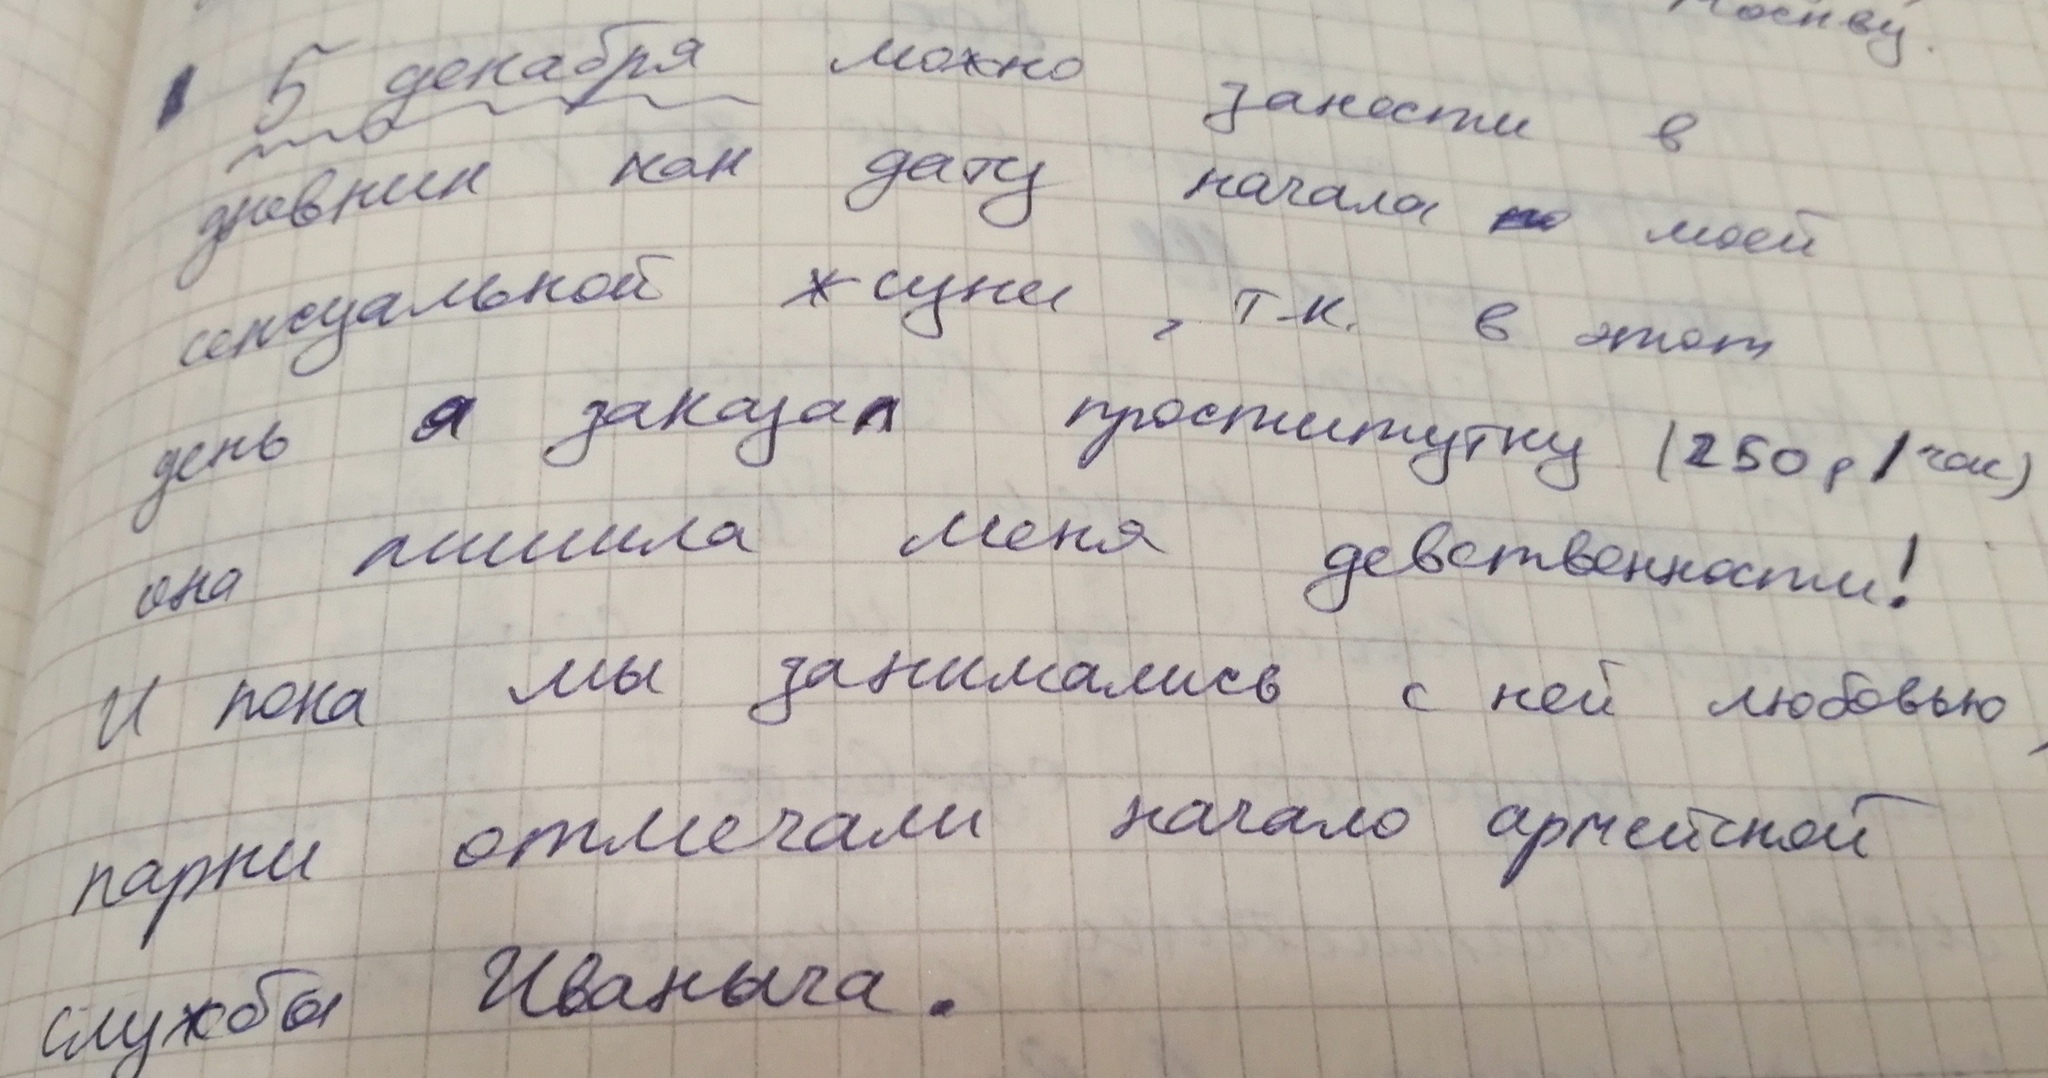 Москву.
5 декабря можно занести в
дневник как дату начала моей
сексуальной жизни, т.к. в этот
день я заказал проститутку (250р/час)
она лишила меня девственности!
И пока мы занимались с ней любовью,
парни отмечали начало армейской
службы Иваныча.